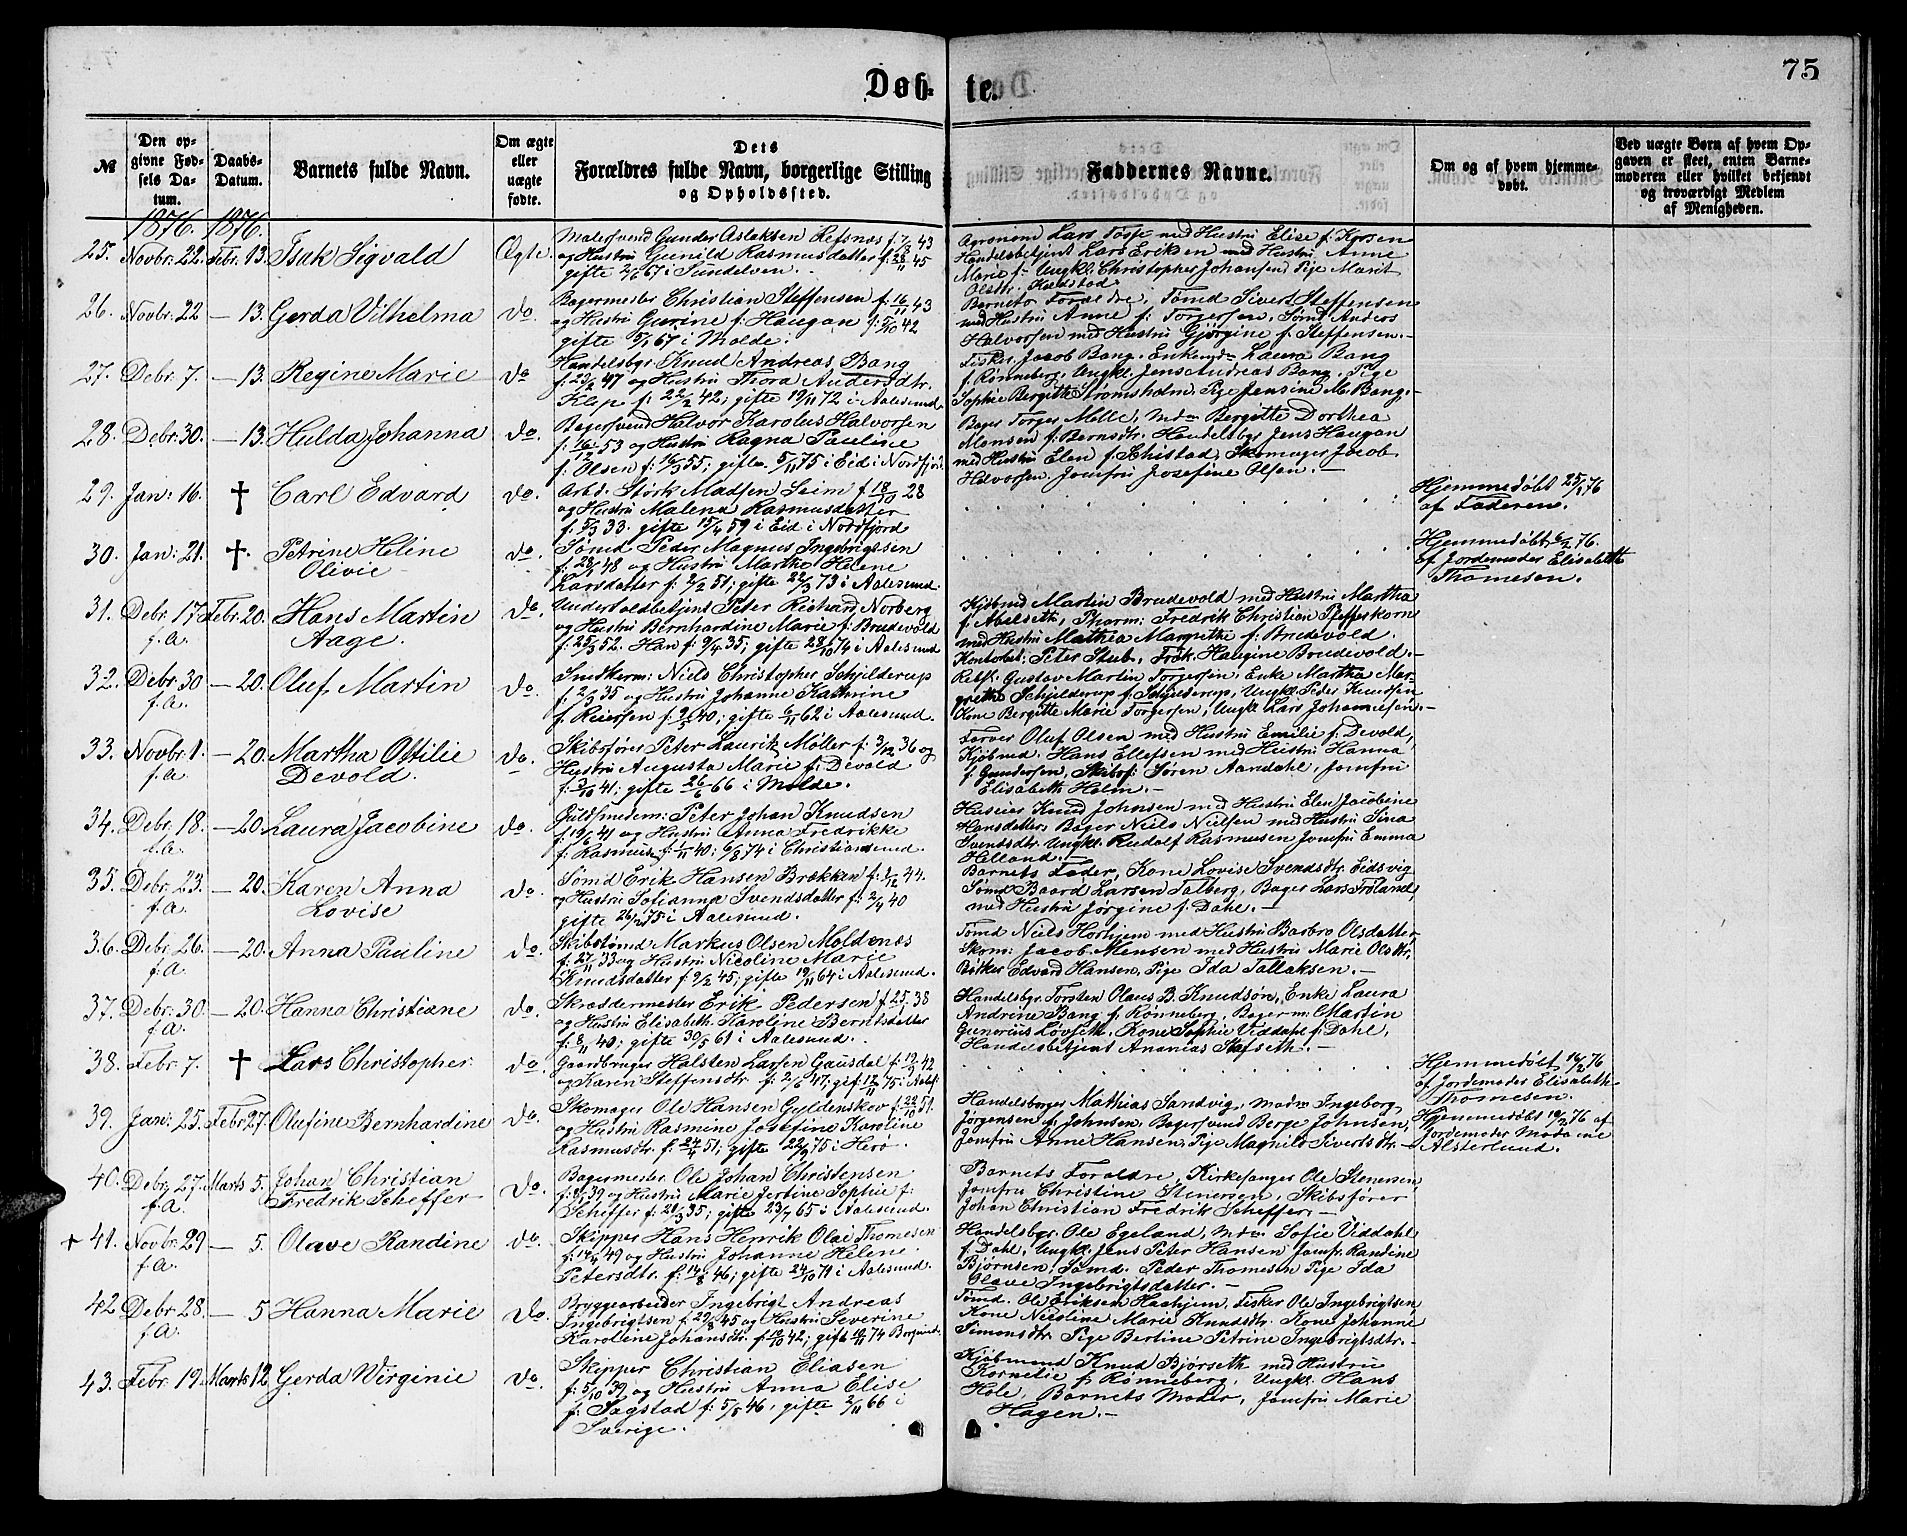 75
Døbte.
№
Den opgivne Fødsels Datum.
Daabs-Datum.
Barnets fulde Navn.
Om ægte eller uægte fødte.
Dets Forældres fulde Navn, borgerlige Stilling og Opholdssted.
Faddernes Navne.
Om og af hvem hjemmedøbt.
Ved uægte Børn af hvem Opgaven er skeet, enten Barnemoderen eller hvilket bekjendt og troværdigt Medlem af Menigheden.
1876. 1876.
25. Novbr: 22. Febr. 13. Isak Sigvald Ægte.
Malersvend Gunder Aslaksen Refsnæs f: 7/8 43
og Hustru Gunild Rasmusdatter f: 28/11 45
Agronom Lars Tosse med Hustru Elise f:
Handelsbetjent Lars Eriksen med Hustru Anne
Marie f. Ungkl. Christopher Johansen Pige Marit
26. Novbr: 22 — 13. Gerda Vilhelma do.
Bagermester Christian Steffensen f: 16/11 43
og Hustru Gurine f: Haugan f: 5/10 42
gifte 9/1 67 i Molde.
Barnets Forældre, Tømd Sivert Steffensen
med Hustru Anne f: Torgersen, Sømd Andreas
Halvorsen med Hustru Gjørgine f: Steffensen.
27. Debr: 7. — 13. Regine Marie do
Handelsbgr. Knud Andreas Bang
f: 23/2 47 og Hustru Thora Andersdtr.
Klep f: 22/2 42; gifte 19/11 72 i Aalesund.
Fisker Jacob Bang. Enkemdm Laura Bang
f. Rønneberg, Ungkl. Jens Andreas Bang. Pige
Sophie Bergitte Strømsholm. Pige Jensine M. Bang.
28. Debr: 30. — 13. Hulda Johanna do.
Bagersvend Halvor Karolus Halvorsen
f. 16/12 53 og Hustru Ragna Pauline
f: Olsen f: 16/3 55; gifte 5/11 75 i Eid i Nordfjord.
Bager Torger Melle, Mdm Bergitte Dorthea
Monsen f: Berntsdtr. Handelsbgr. Jens Haugan
med Hustru Elen f. Skistad, Skomager Jacob
Halvorsen. Jomfru Josefine Olsen.
29. Jan: 16. † Carl Edvard do.
Arbd. Størk Madsen Leim f 18/10 28
og Hustru Malena Rasmusdatter
f: 5/3 33. gifte 15/4 59 i Eid i Nordfjord
Hjemmedøbt 25/1 76
af Faderen.
30. Jan: 21. † Petrine Heline
Olivie do.
Sømd Peder Magnus Ingebrigtsen
f: 28/1 48 og Hustru Martha Helene
Larsdatter f: 2/2 51; gifte 22/3 73 i Aalesund.
Hjemmedøbt 6/2 76.
af Jordemoder Elisabeth
Thomesen.
31. Debr. 17 f.A. Febr. 20. Hans Martin
Aage. do.
Undertoldbetjent Peter Richard Norberg
og Hustru Bernhardine Marie f: Brudevold
f: 25/3 52. Han f: 9/4 35; gifte 28/10 74 i Aalesund
Kjøbmd Martin Brudevold med Hustru Martha
f: Abelseth, Pharm: Fredrik Christian Pfefferkorn
med Hustru Mathea Margrethe f: Brudevold.
Kontorbet: Peter Stub, Frøk. Haugine Brudevold.
32. Debr. 30 f.A. — 20. Oluf Martin do
Snedkerm: Niels Christopher Schjelderup
f. 2/3 35 og Hustru Johanne Kathrine
f: Reiersen f: 9/5 40; gifte 6/11 62 i Aalesund.
Rebsl. Gustav Martin Torgersen, Enke Martha Margrethe
Schjelderup f. Schjelderup, Ungkl. Peder Knudsen
Kone Bergitte Marie Torgersen, Ungkl. Lars Johannesen.
33. Novbr. 1. f.A — 20. Martha Ottilie
Devold. do.
Skibsfører Peter Laurits Møller f: 3/12 36 og
Hustru Augusta Marie f: Devold
f: 3/10 41; gifte 26/6 66 i Molde.
Farver Oluf Olsen med Hustru Emilie f. Devold,
Kjøbmd. Hans Ellefsen med Hustru Hanna
f. Gundersen, Skibsf: Søren Aandahl, Jomfru
Elisabeth Holm.
34. Debr: 18. f.A. — 20. Laura Jacobine do.
Guldsmedem: Peter Johan Knudsen
f: 19/6 41 og Hustru Anna Fredrikke
f. Rasmusen f: 1/11 40; 6/8 74 i Christiansund.
Huseier Knud Johnsen med Hustru Elen Jacobine
Hansdatter, Bager Niels Nielsen med Hustru Sina
Svendsdtr. Ungkl. Rudolf Rasmusen Jomfru Emma
Helland.
35. Debr: 23. f.A. — 20. Karen Anna
Lovise do.
Sømd Erik Hansen Brækken f: 1/12 44.
og Hustru Sofianna Svendsdatter f: 2/4 40
gifte 26/2 75 i Aalesund.
Barnets Fader, Kone Lovise Svendsdtr. Eidsvig
Sømd Baard Larsen Talberg, Bager Lars Frøland,
med Hustru Jørgine f. Dahl.
36. Debr: 26. f.A. — 20. Anna Pauline do.
Skibstømd Markus Olsen Moldenæs
f: 27/11 33 og Hustru Nicoline Marie
Knudsdatter f. 9/2 45; gifte 19/11 64 i Aalesund.
Tømd Niels Horhjem med Hustru Barbro Olsdatter,
Skom: Jacob Monsen med Hustru Marie Olsdtr,
Bøtker Edvard Hansen, Pige Ida Tallaksen.
37. Debr: 30. f.A. — 20. Hanna Christiane do.
Skræddermester Erik Pedersen f 25. 38
og Hustru Elisabeth Karoline Berntsdatter
f: 8/11 40; gifte 30/5 61 i Aalesund.
Handelsbgr. Torsten Olaus B. Knudsøn, Enke Laura
Andrine Bang f. Rønneberg, Bagerm: Martin
Gunerius Løvseth. Kone Sophie Viddahl f. Dahl,
Handelsbetjent Ananias Stafseth.
38. Febr. 7. † Lars Christopher do.
Gaardbruger Halsten Larsen Gausdal f: 19/9 42
og Karen Steffensdtr. f: 2/6 47; gif: 17/11 75 i Aalesf.
Hjemmedøbt 16/2 76
af Jordemoder Elisabeth
Thomesen.
39. Jan: 25. Febr 27. Olufine Bernhardine do.
Skomager Ole Hansen Gyldenskov f: 22/10 51.
og Hustru Rasmine Josefine Karoline
Rasmusdtr. f: 24/4 51; gifte 22/9 75 i Herø.
Handelsborger Mathias Sandvig, Madm Ingeborg
Jørgensen f. Johnsen, Bagersvend Berge Johnsen,
Jomfru Anne Hansen, Pige Magnild Sivertsdtr.
Hjemmedøbt 10/2 76 af
Jordemoder Madame
Alsterlund.
40. Debr. 27. f.A. Marts 5. Johan Christian
Fredrik Scheffer do.
Bagermester Ole Johan Christensen
f: 8/1 39 og Hustru Marie Jertine Sophie f:
Scheffer f: 21/3 35; gifte 23/7 65 i Aalesund.
Barnets Forældre, Kirkesanger Ole Stenersen
Jomfru Christine Stenersen, Skibsfører
Johan Christian Fredrik Scheffer.
+ 41. Novbr: 29 f.A. — 5. Olave Randine do.
Skipper Hans Henrik Olai Thomesen
f: 14/4 49 og Hustru Johanne Helene
Petersdtr. f: 14/8 46; gifte 24/10 74 i Aalesund.
Handelsbgr. Ole Egeland, Mdm. Sofie Viddahl
f. Dahl, Ungkl. Jens Peter Hansen Jomfr. Randine
Bjørnsen, Sømd. Peder Thomesen Pige Ida
Olave Ingebrigtsdatter.
42 Debr: 28. f.A. — 5 Hanna Marie do.
Bryggearbeider Ingebrigt Andreas
Ingebrigtsen f. 29/8 45 og Hustru Severine
Karoline Johansdtr. f. 19/10 42; gift 18/11 74 Borgund.
Tømd. Ole Eriksen Haahjem, Fisker Ole Ingebrigtsen,
Kone Nicoline Marie Knudsdtr. Kone Johanne
Simonsdtr. Pige Bertine Petrine Ingebrigtsdtr.
43. Febr. 19. Marts 12. Gerda Virginie do.
Skipper Christian Eliasen
f: 5/10 39 og Hustru Anna Elise
f: Sagstad f: 5/5 46, gifte 2/11 66 i
Sverige.
Kjøbmand Knud Bjørseth med Hustru
Kornelie f: Rønneberg, Ungkl. Hans
Hole, Barnets Moder, Jomfru Marie
Hagen.